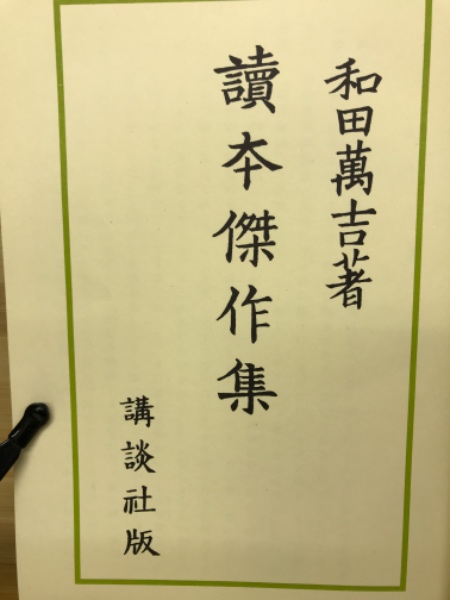 和田萬吉著
讀本傑作集
講談社版